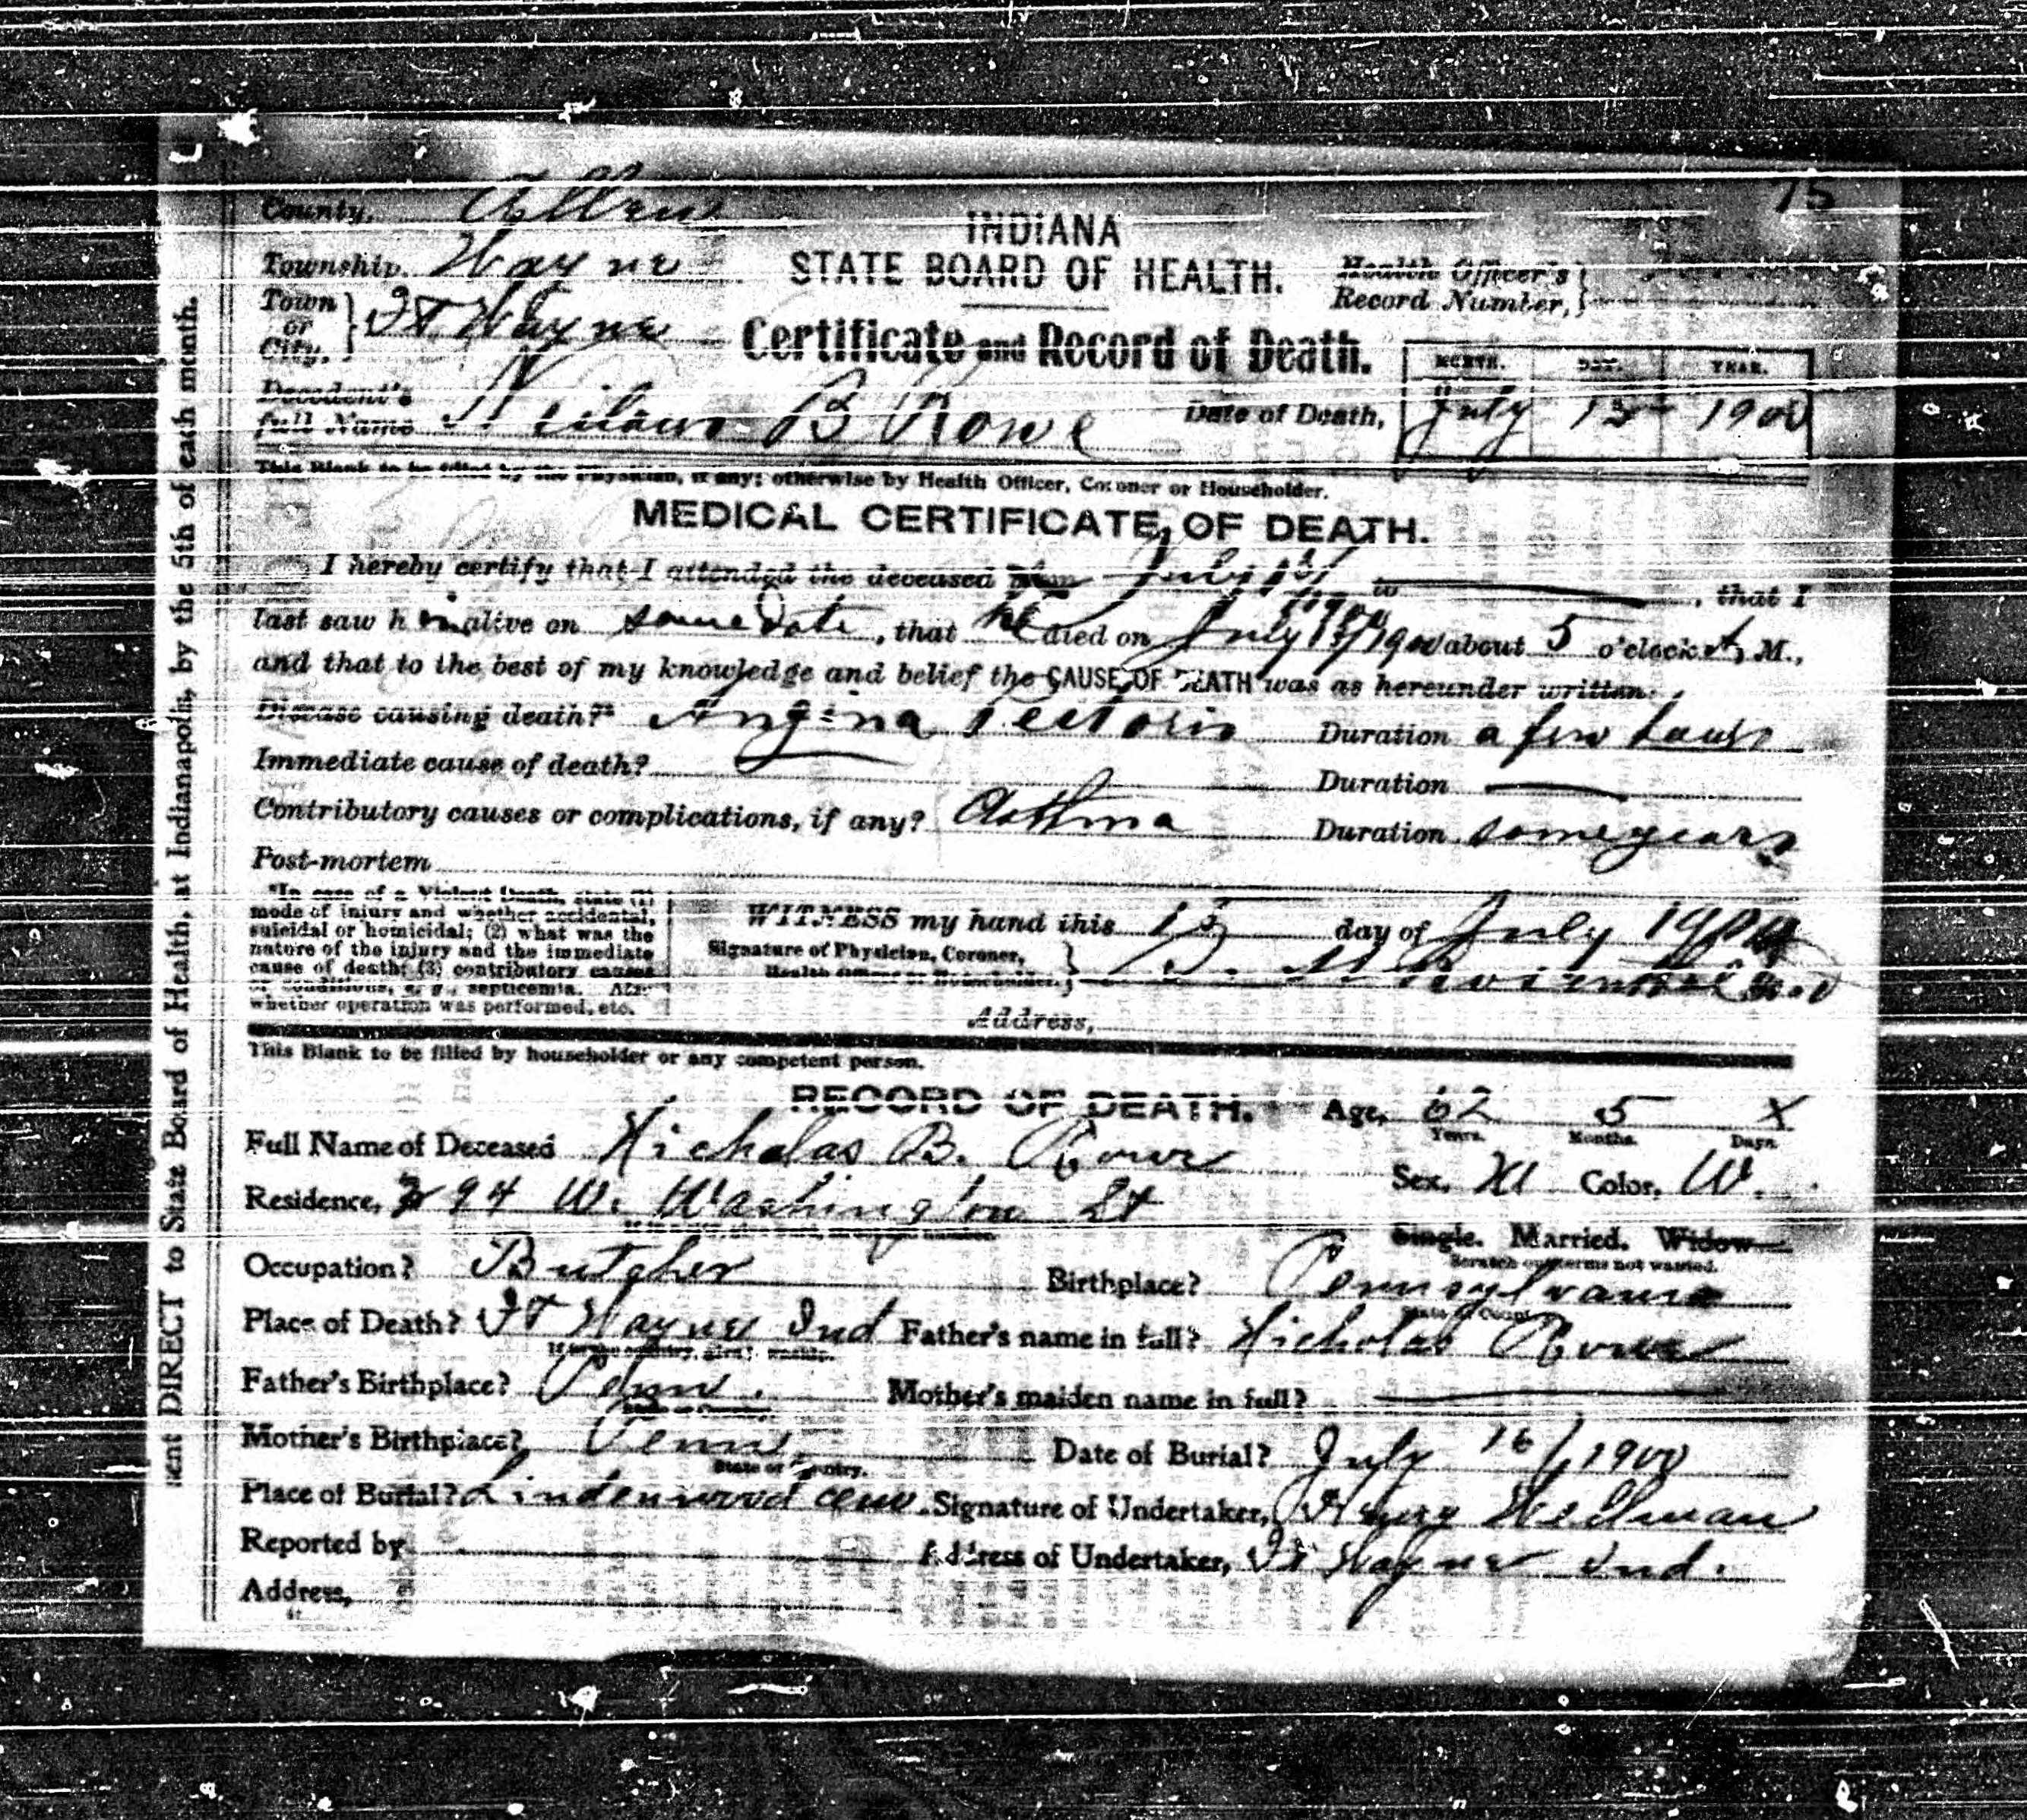 75
County, Allen
INDIANA
Township, Wayne
STATE BOARD OF HEALTH.
Health Officer's Record Number,
Town or City, Ft Wayne
Certificate and Record of Death.
MONTH. DAY. YEAR.
Decedent's full Name B Rowe Date of Death, July 1900
This Blank to be filled by the Physician, if any; otherwise by Health Officer, Coroner or Householder.
MEDICAL CERTIFICATE OF DEATH.
I hereby certify that I attended the deceased July to , that I
last saw him alive on same date, that he died on July 1900 about 5 o'clock A, M.,
and that to the best of my knowledge and belief the CAUSE OF DEATH was as hereunder written:
Disease causing death?* Angina Pectoris Duration a few hours
Immediate cause of death? Duration
Contributory causes or complications, if any? Asthma Duration some years
Post-mortem
*In case of a Violent Death, state (1)
mode of injury and whether accidental,
suicidal or homicidal; (2) what was the
nature of the injury and the immediate
cause of death; (3) contributory causes
or conditions, e. g., septicemia. Also
whether operation was performed, etc.
WITNESS my hand this day of July 1900
Signature of Physician, Coroner,
Health Officer or Householder.
Address,
This Blank to be filled by householder or any competent person.
RECORD OF DEATH. Age, 62 5 X
Years. Months. Days.
Full Name of Deceased Nicholas B. Rowe
Sex, M Color, W.
Residence, 94 W. Washington St
Single. Married. Widow
Scratch out terms not wanted.
Occupation? Butcher Birthplace? Pennsylvania
State or Country
Place of Death? Ft Wayne Ind Father's name in full? Nicholas Rowe
Father's Birthplace? Penn. Mother's maiden name in full?
State or Country.
Mother's Birthplace? Penn. Date of Burial? July 16/1900
State or Country.
Place of Burial? Lindenwood cem. Signature of Undertaker,
Reported by Address of Undertaker, Ft Wayne Ind.
Address,
sent DIRECT to State Board of Health, at Indianapolis, by the 5th of each month.